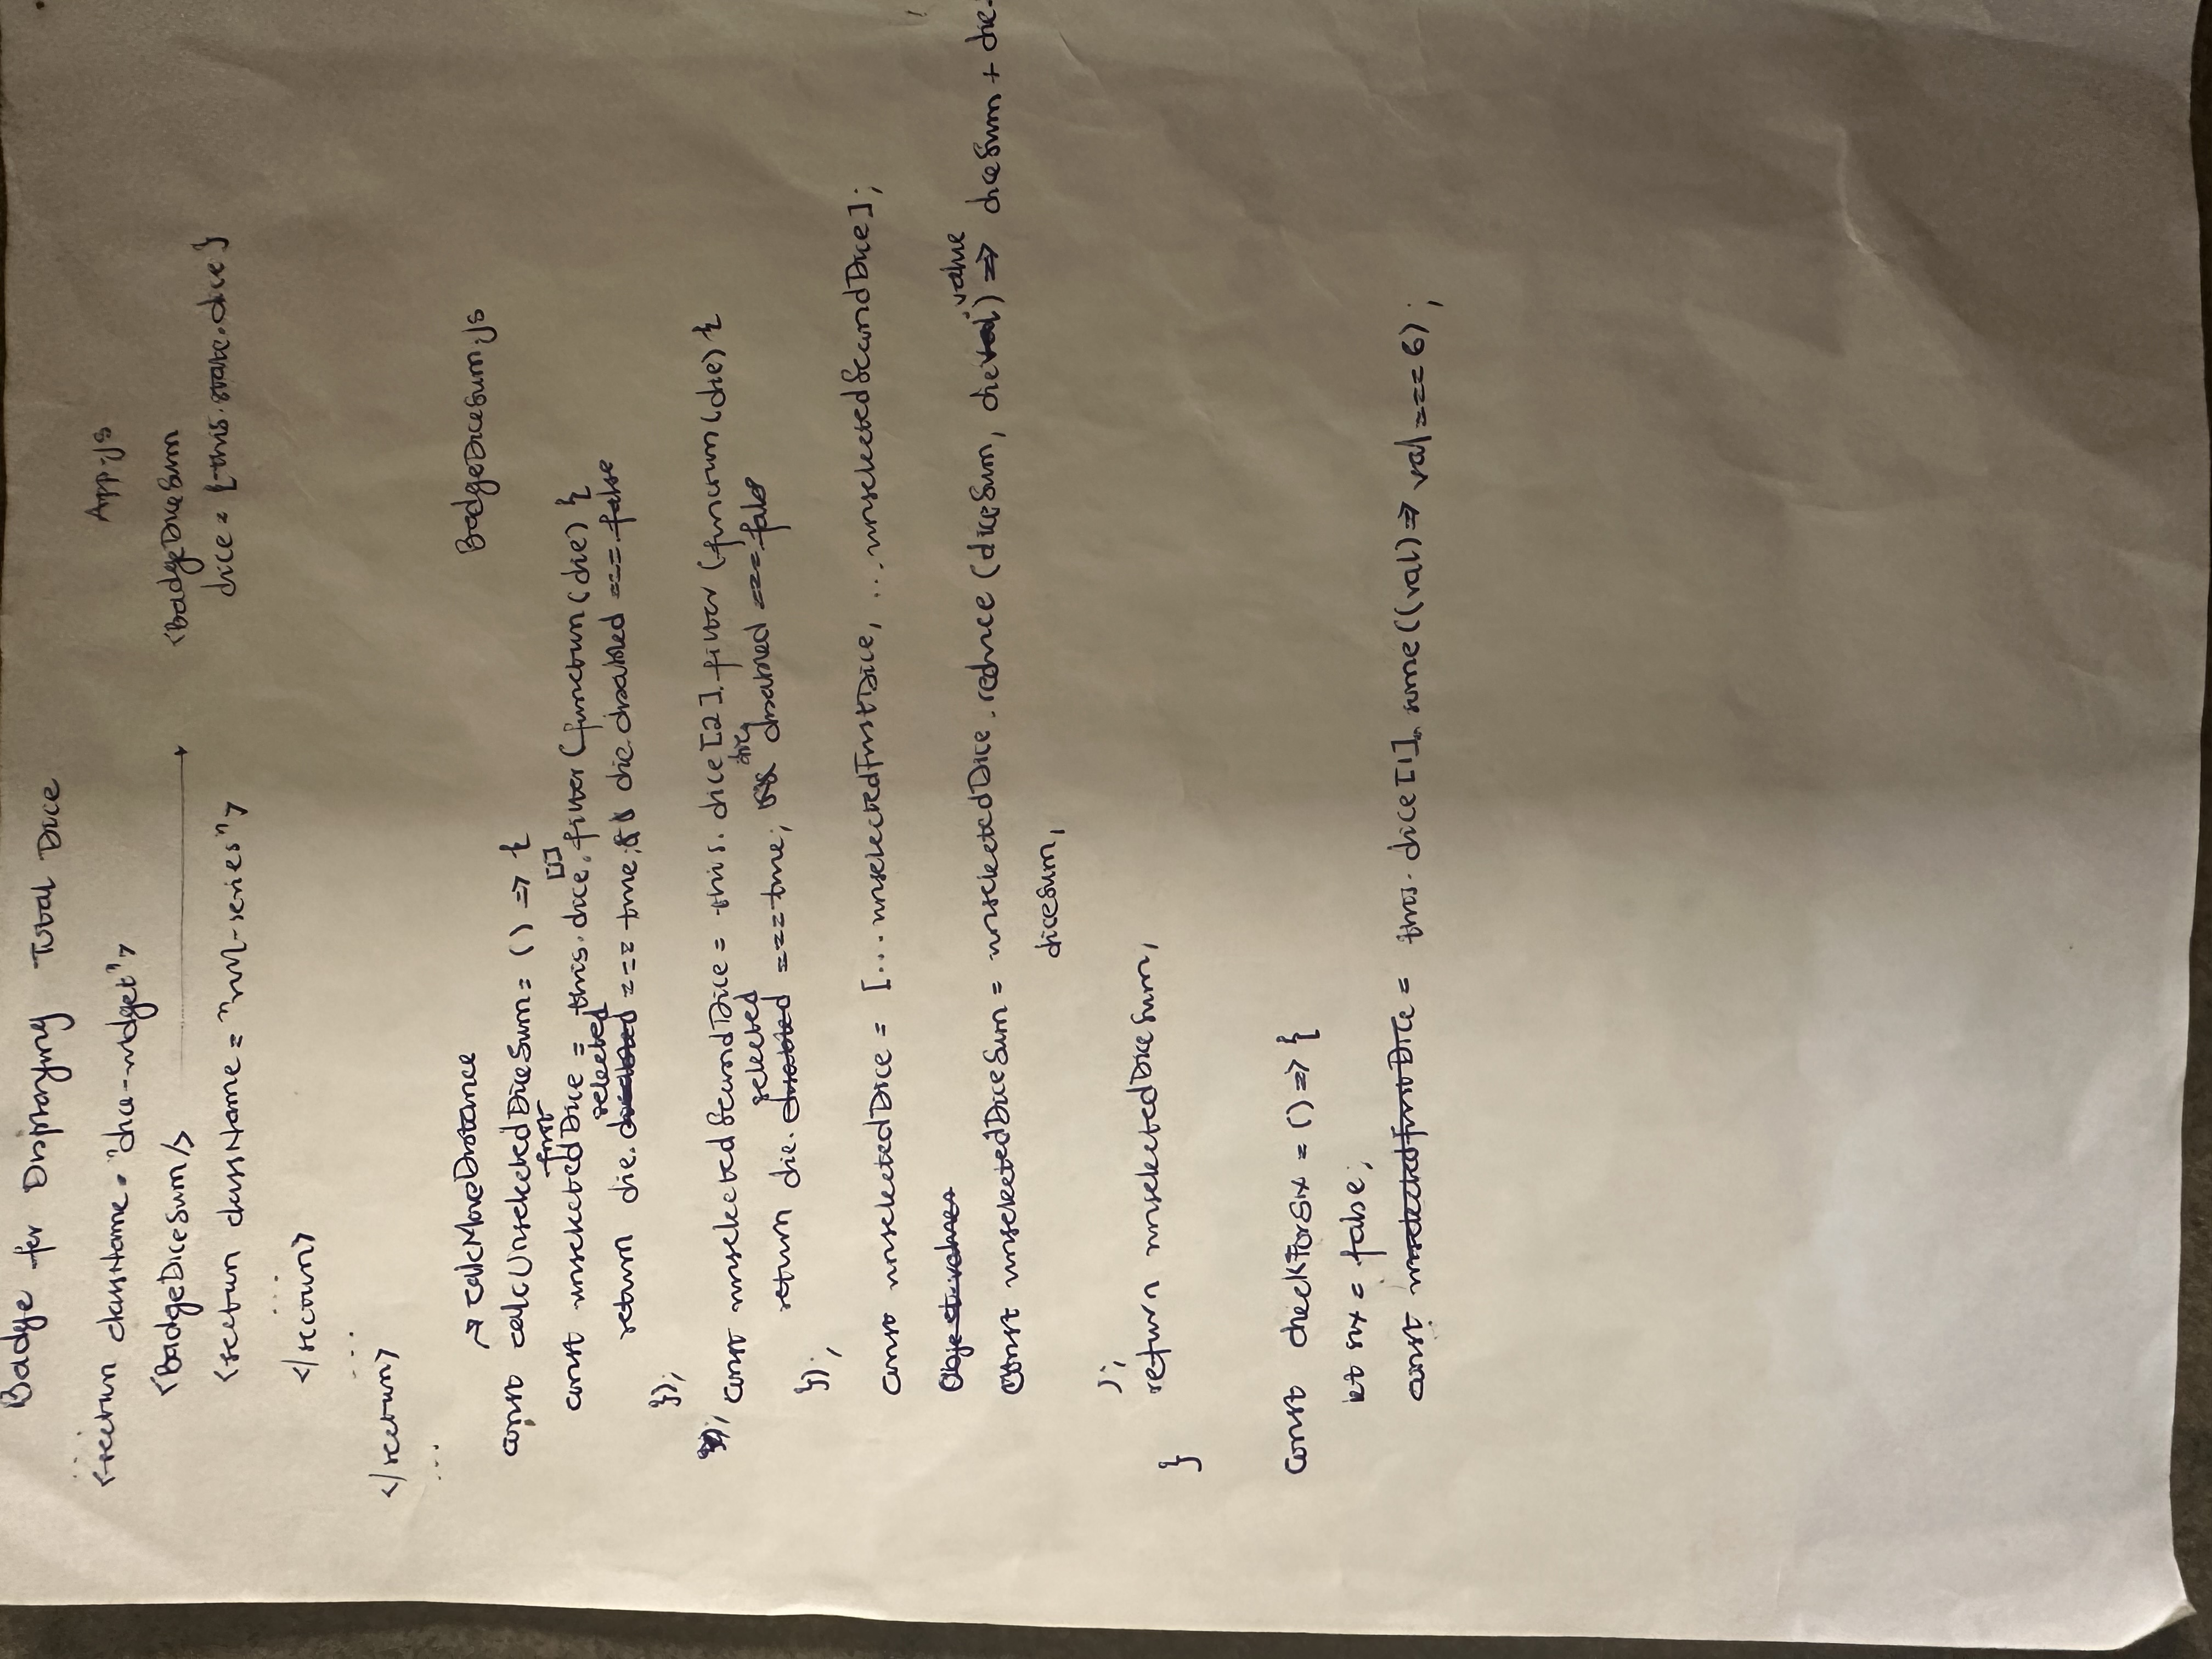 Badge for Displaying Total Dice
...
<section className = "dice-widget">
App.js
<BadgeDiceSum />
<BadgeDiceSum
<section className = "roll-series">
dice = {this.state.dice}
...
</section>
...
</section>
...
→ calcMoveDistance
BadgeDiceSum.js
const calcUnselectedDiceSum = () => {
first [1]
const unselectedDice = this.dice.filter(function(die) {
selected
return die.disabled === true; && die.disabled === false
});
});
const unselectedSecondDice = this.dice[2].filter(function(die) {
selected die.
return die.disabled === true; && disabled === false
});
const unselectedDice = [...unselectedFirstDice, ...unselectedSecondDice];
Object.values
.value
const unselectedDiceSum = unselectedDice.reduce(diceSum, dieval) => diceSum + die.
diceSum,
);
return unselectedDiceSum;
}
const checkForSix = () => {
let six = false;
const unselectedFirstDice = this.dice[1].some((val) => val === 6);